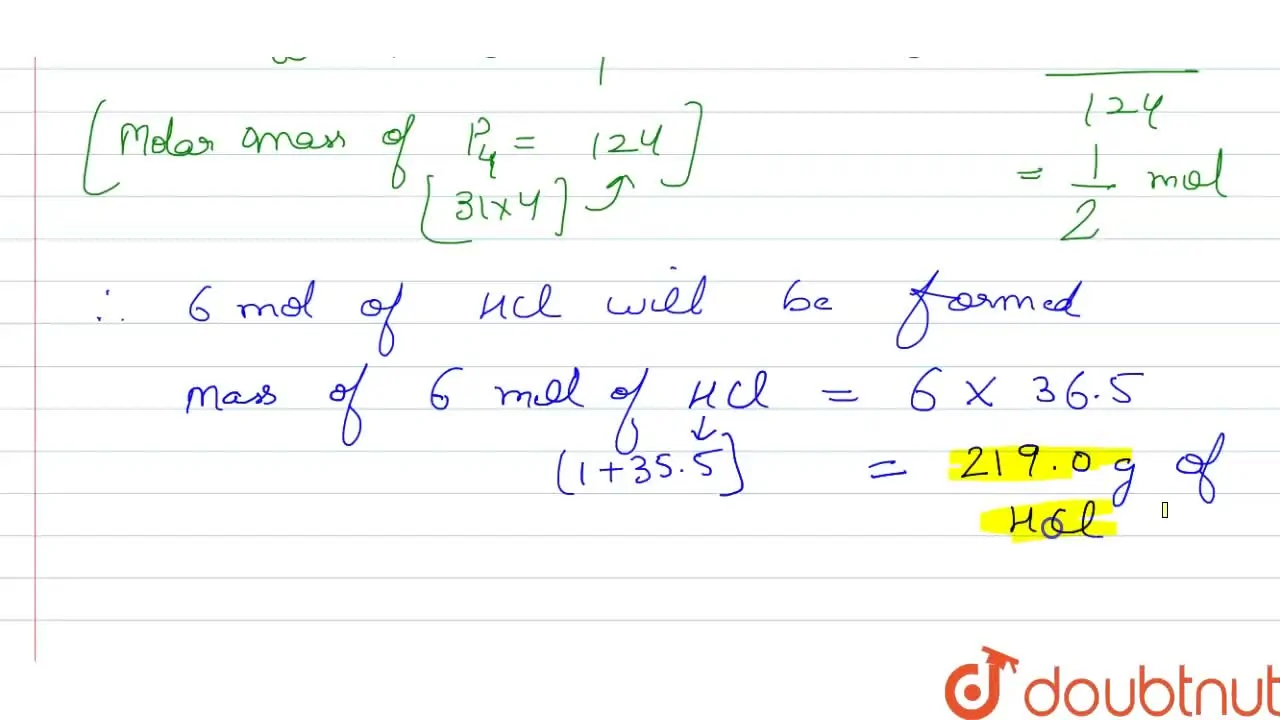 124
[Molar mass of P4 = 124]
[31x4]
= 1/2 mol
∴ 6 mol of HCl will be formed
mass of 6 mol of HCl = 6 X 36.5
(1+35.5] = 219.0 g of
HCl
doubtnut